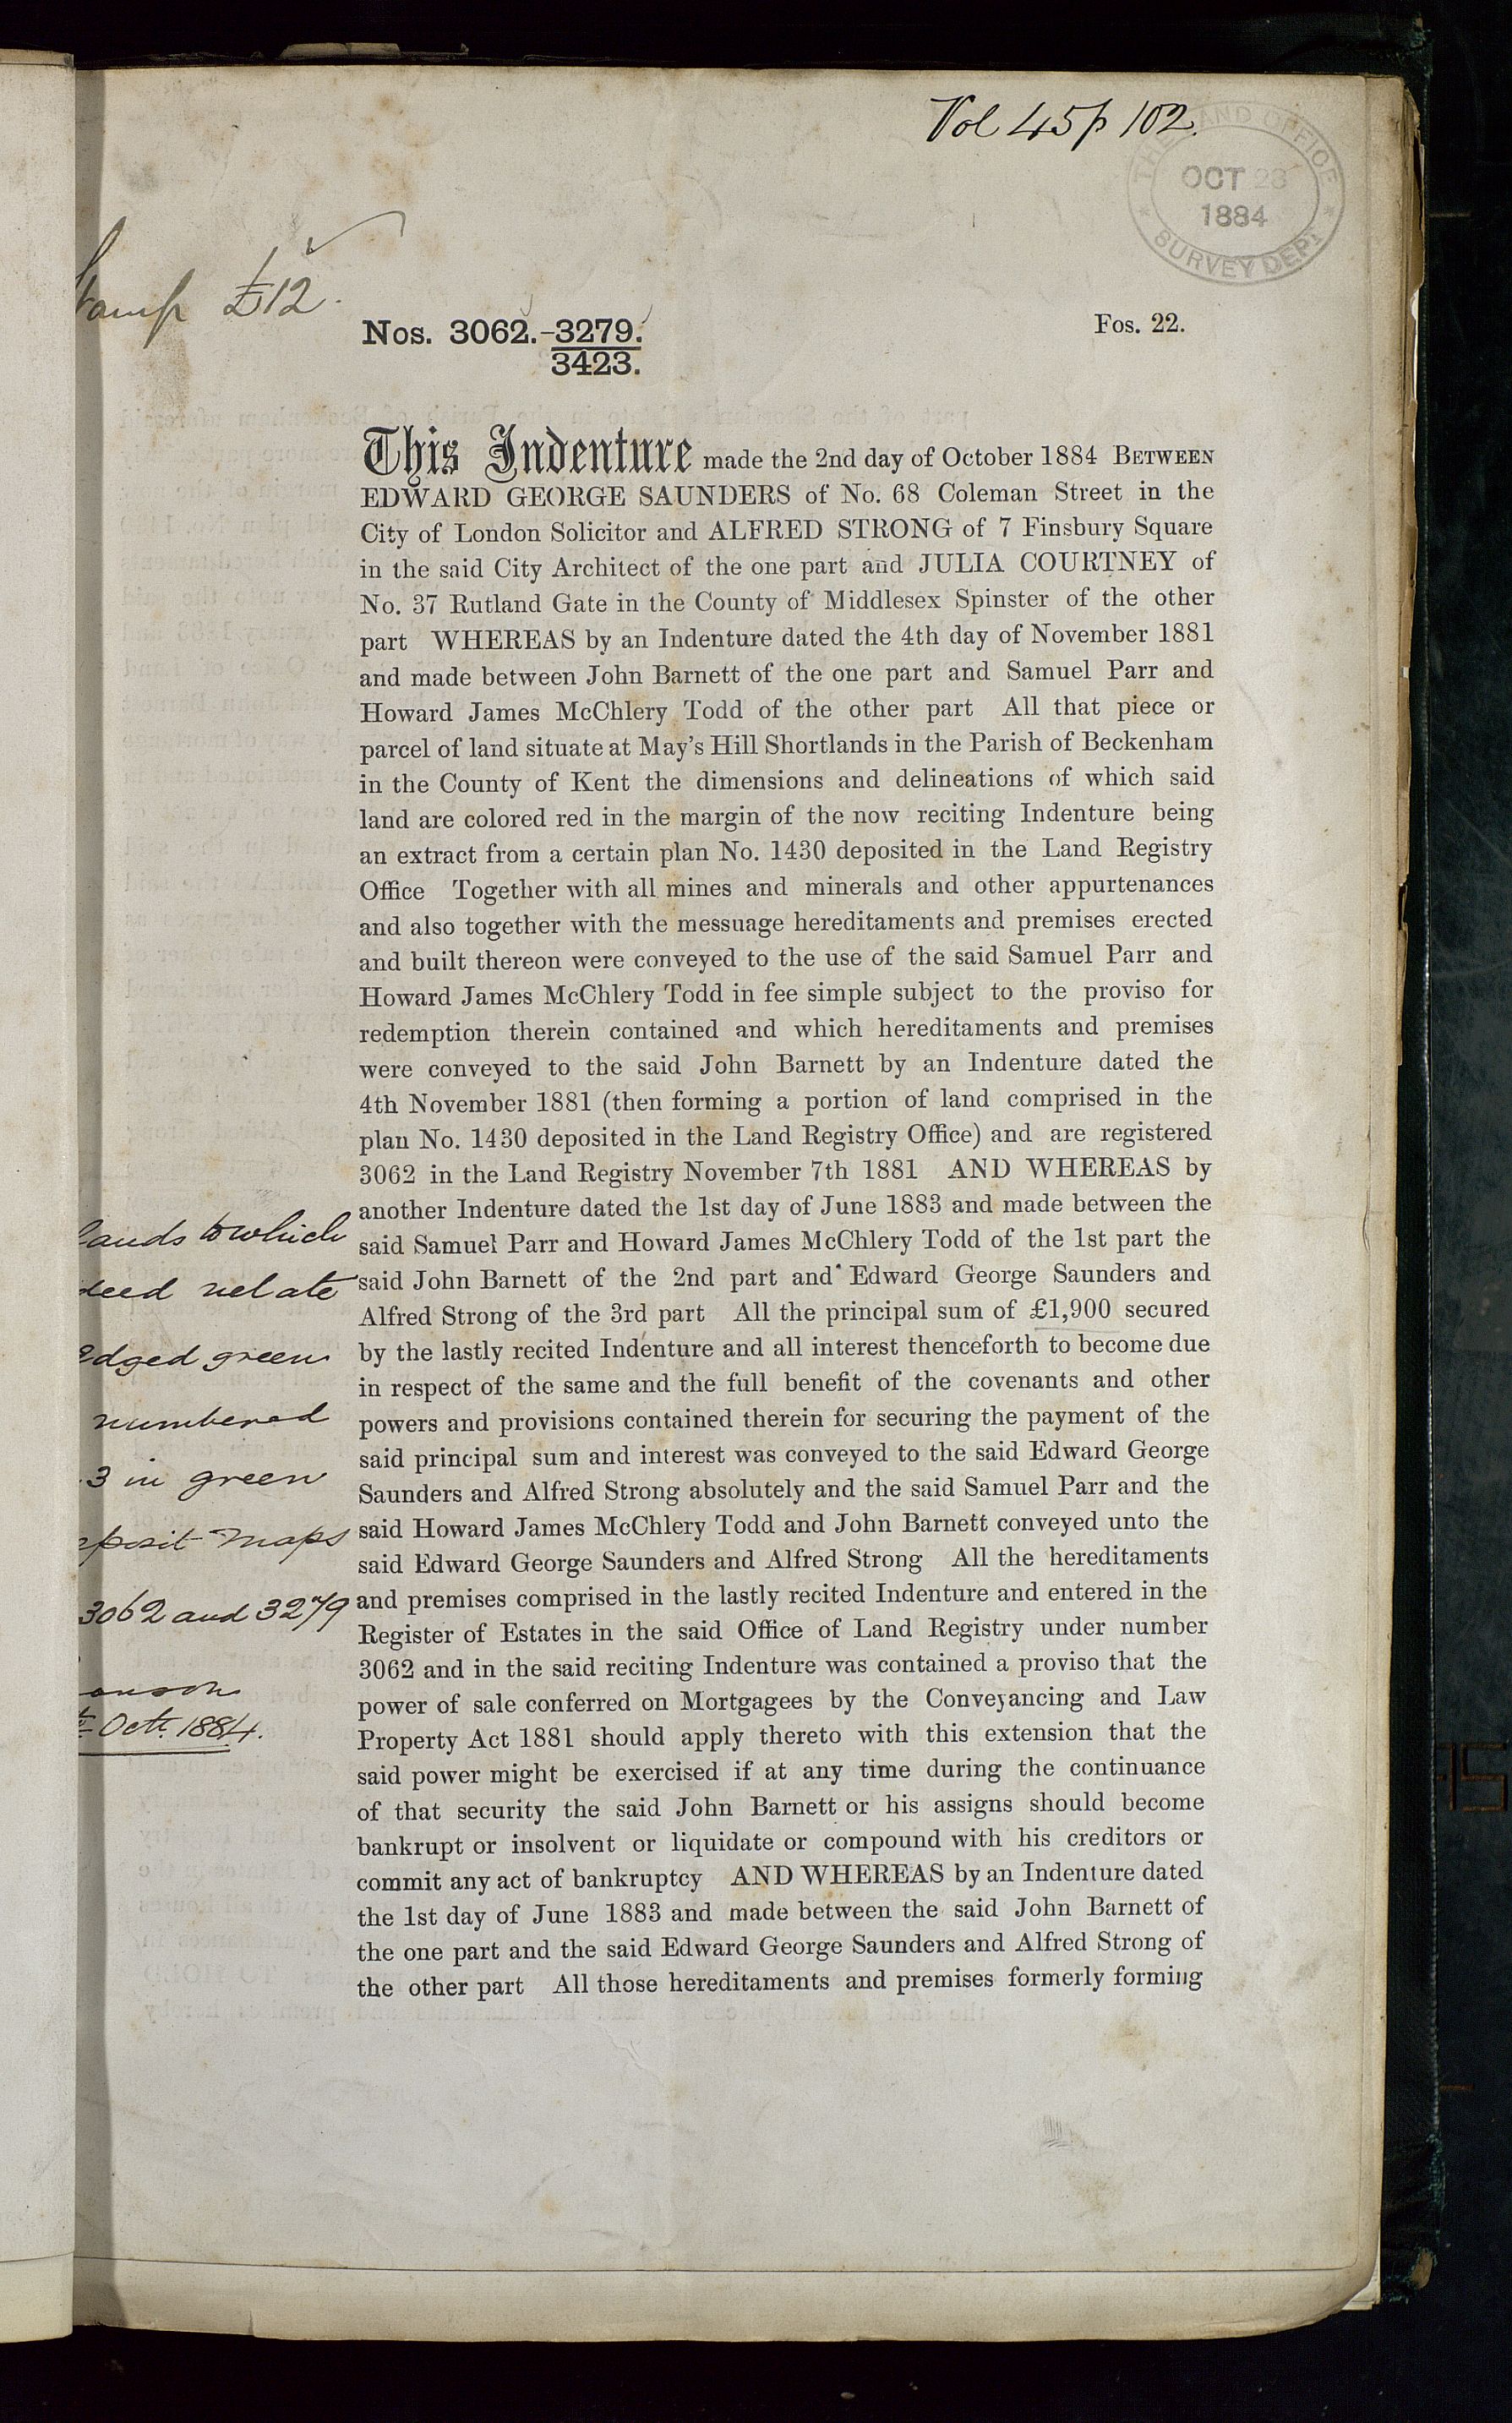 Vol 45 p 102.
THE LAND OFFICE
OCT 23
1884
SURVEY DEPT
Stamp £12.
Nos. 3062.-3279.
3423.
Fos. 22.
This Indenture made the 2nd day of October 1884 BETWEEN
EDWARD GEORGE SAUNDERS of No. 68 Coleman Street in the
City of London Solicitor and ALFRED STRONG of 7 Finsbury Square
in the said City Architect of the one part and JULIA COURTNEY of
No. 37 Rutland Gate in the County of Middlesex Spinster of the other
part WHEREAS by an Indenture dated the 4th day of November 1881
and made between John Barnett of the one part and Samuel Parr and
Howard James McChlery Todd of the other part All that piece or
parcel of land situate at May's Hill Shortlands in the Parish of Beckenham
in the County of Kent the dimensions and delineations of which said
land are colored red in the margin of the now reciting Indenture being
an extract from a certain plan No. 1430 deposited in the Land Registry
Office Together with all mines and minerals and other appurtenances
and also together with the messuage hereditaments and premises erected
and built thereon were conveyed to the use of the said Samuel Parr and
Howard James McChlery Todd in fee simple subject to the proviso for
redemption therein contained and which hereditaments and premises
were conveyed to the said John Barnett by an Indenture dated the
4th November 1881 (then forming a portion of land comprised in the
plan No. 1430 deposited in the Land Registry Office) and are registered
3062 in the Land Registry November 7th 1881 AND WHEREAS by
another Indenture dated the 1st day of June 1883 and made between the
said Samuel Parr and Howard James McChlery Todd of the 1st part the
said John Barnett of the 2nd part and Edward George Saunders and
Alfred Strong of the 3rd part All the principal sum of £1,900 secured
by the lastly recited Indenture and all interest thenceforth to become due
in respect of the same and the full benefit of the covenants and other
powers and provisions contained therein for securing the payment of the
said principal sum and interest was conveyed to the said Edward George
Saunders and Alfred Strong absolutely and the said Samuel Parr and the
said Howard James McChlery Todd and John Barnett conveyed unto the
said Edward George Saunders and Alfred Strong All the hereditaments
and premises comprised in the lastly recited Indenture and entered in the
Register of Estates in the said Office of Land Registry under number
3062 and in the said reciting Indenture was contained a proviso that the
power of sale conferred on Mortgagees by the Conveyancing and Law
Property Act 1881 should apply thereto with this extension that the
said power might be exercised if at any time during the continuance
of that security the said John Barnett or his assigns should become
bankrupt or insolvent or liquidate or compound with his creditors or
commit any act of bankruptcy AND WHEREAS by an Indenture dated
the 1st day of June 1883 and made between the said John Barnett of
the one part and the said Edward George Saunders and Alfred Strong of
the other part All those hereditaments and premises formerly forming
lands to which
deed relate
edged green
numbered
3 in green
eposit maps
3062 and 3279
Oct. 1884.